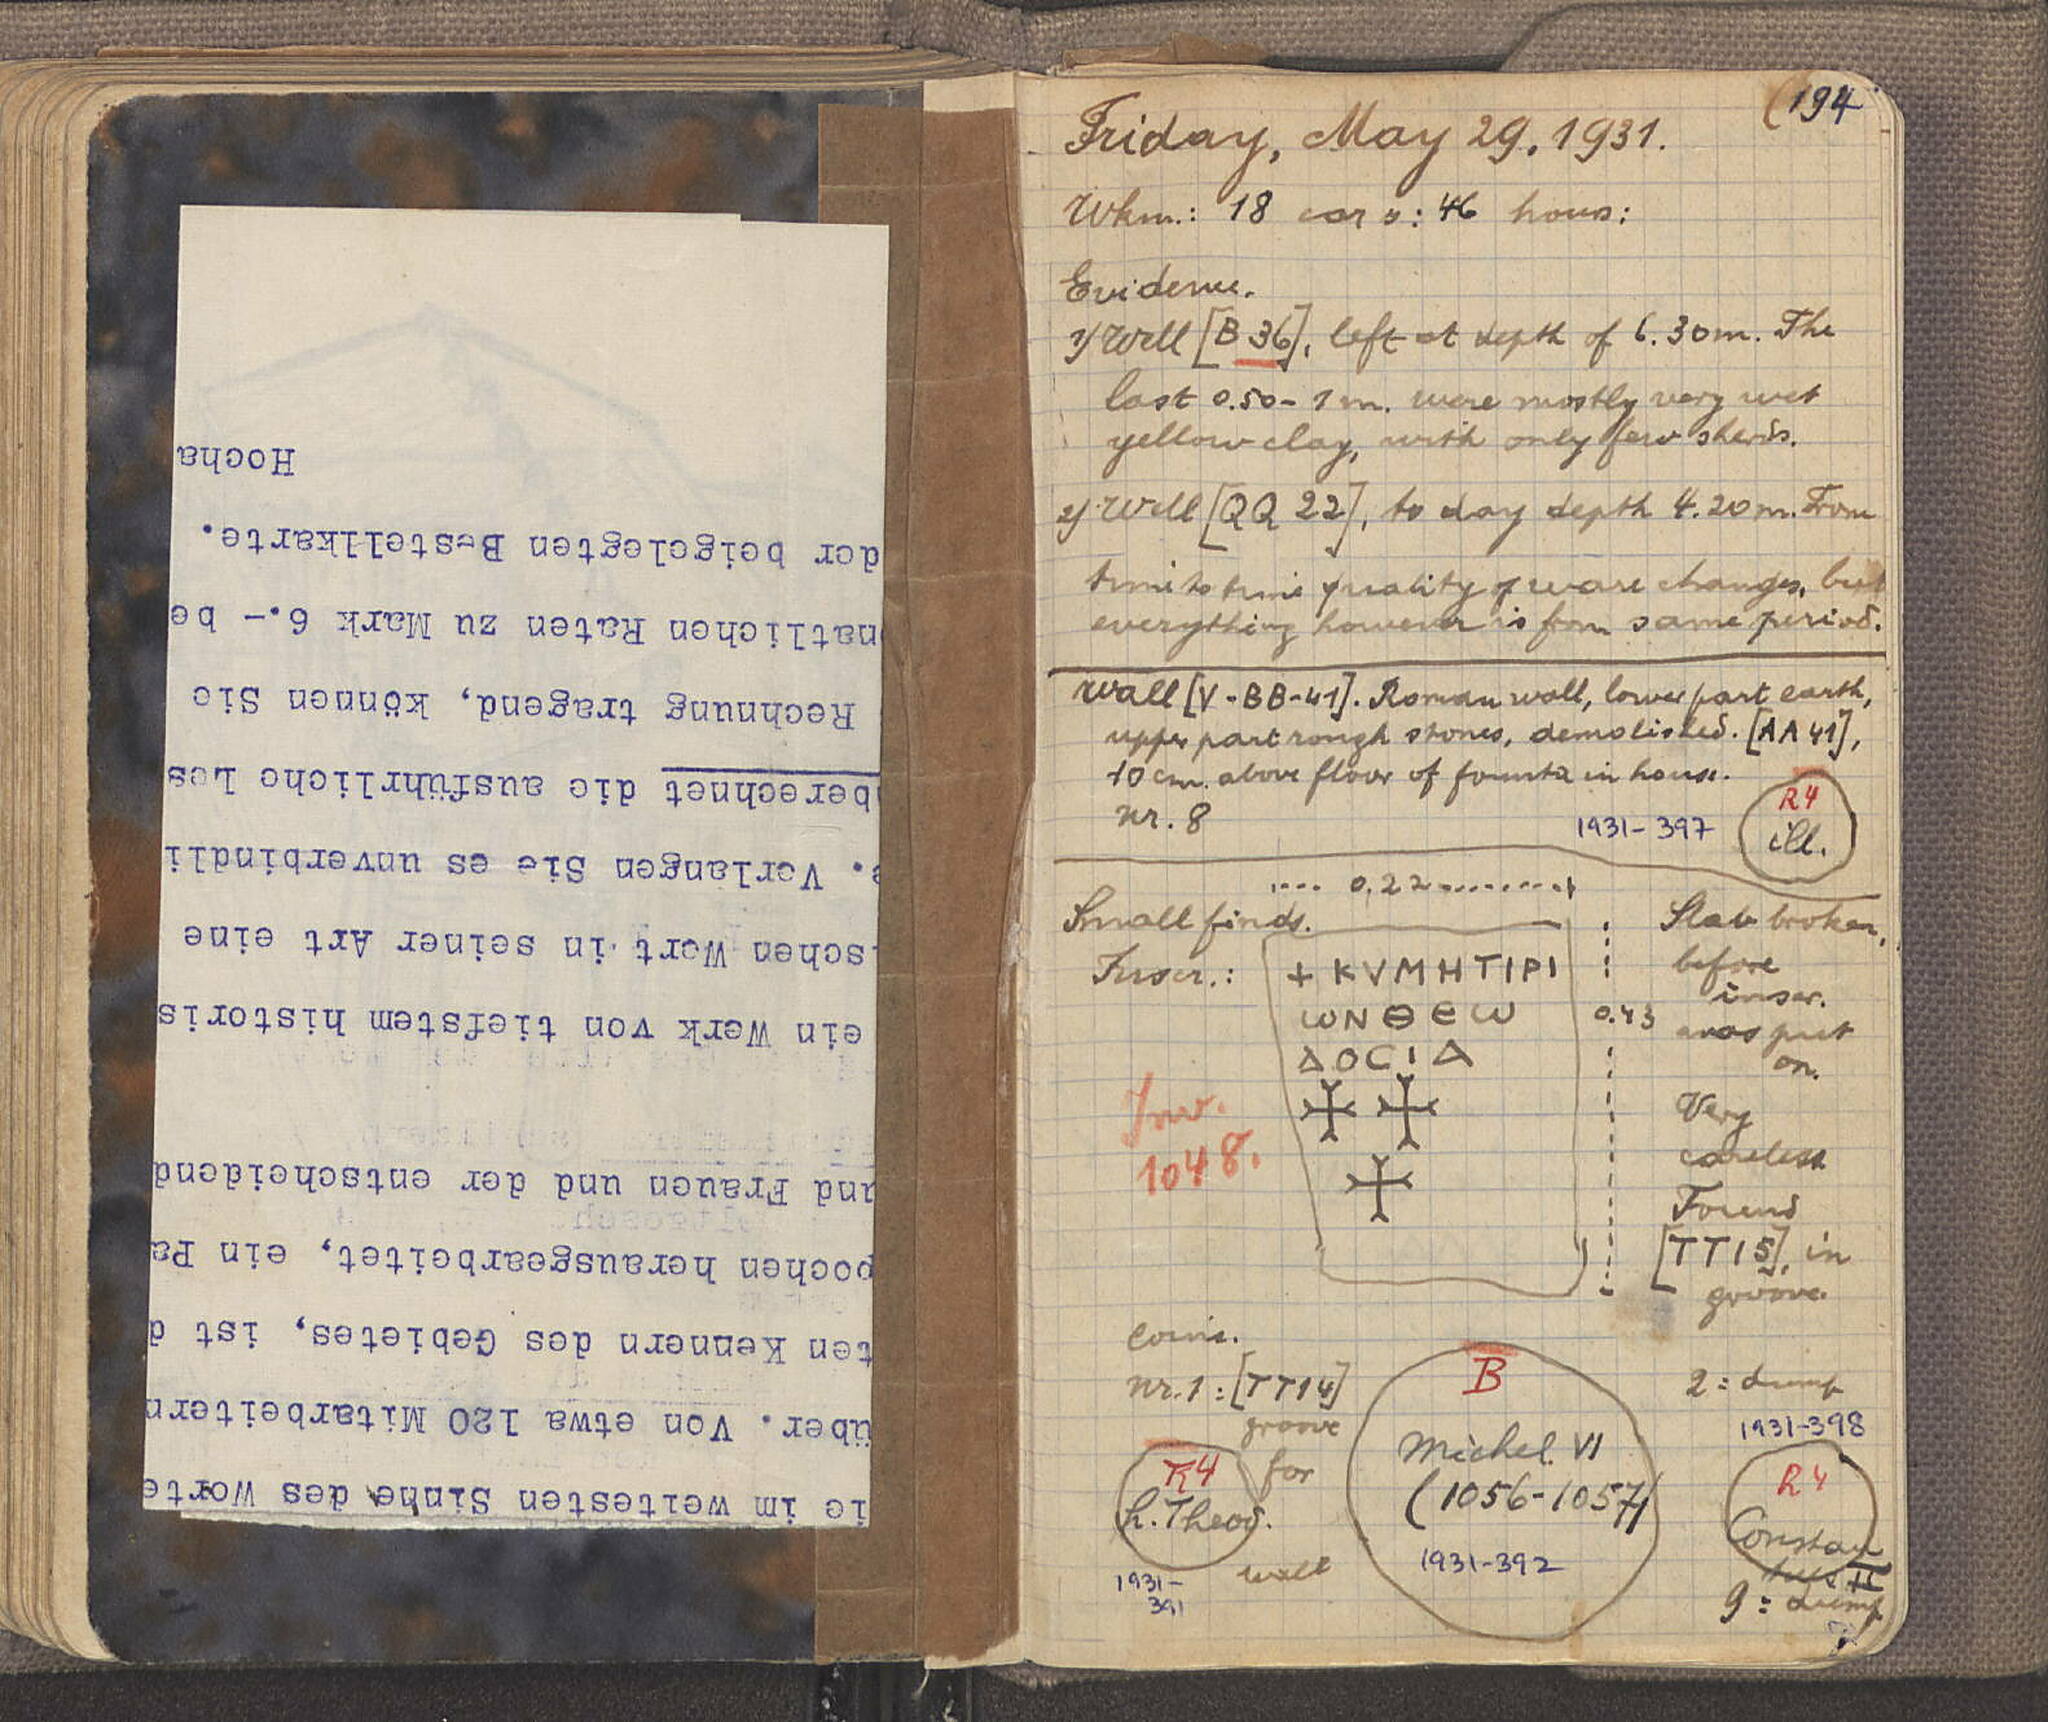 Hocha
der beigelegten Bestellkarte.
natlichen Raten zu Mark 6.- be
Rechnung tragend, können Sie
berechnet die ausführliche Les
e. Verlangen Sie es unverbindli
schen Wort in seiner Art eine
ein Werk von tiefstem historis
und Frauen und der entscheidend
pochen herausgearbeitet, ein Pa
ten Kennern des Gebietes, ist d
über. Von etwa 120 Mitarbeitern
ie im weitesten Sinne des Worte
(194
Friday, May 29, 1931.
Wkm.: 18 cars: 46 hours:
Evidence.
1) Well [B 36], left at depth of 6.30m. The
last 0.50-1m. were mostly very wet
yellow clay, with only few sherds.
2) Well [QQ 22], to day depth 4.20m. From
time to time quality of ware changes, but
everything however is from same period.
Wall [V-BB-41]. Roman wall, lower part earth,
upper part rough stones, demolished. [AA 41],
10 cm. above floor of fountain house.
nr. 8
1931-397
R4
ill.
0.22
Small finds.
Inscr.:
+ KVMHTIPI
ωΝ Θ Є ω
ΔΟC I Δ
0.43
Slab broken,
before
inscr.
was put
on.
Very
careless
Found
[TT15], in
groove.
Inv.
1048.
Coins.
nr. 1: [TT14]
groove
for
wall
R4
h. Theod.
1931-
391
B
Michel VI
(1056-1057)
1931-392
2: dump
1931-398
R4
Constan
tius II
9: dump